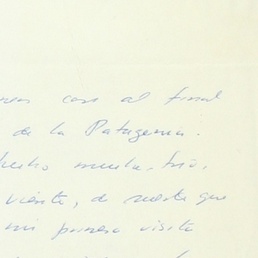 casi al final
de la Patagonia.
hecho mucho frío,
viento, de suerte que
mi primera visita